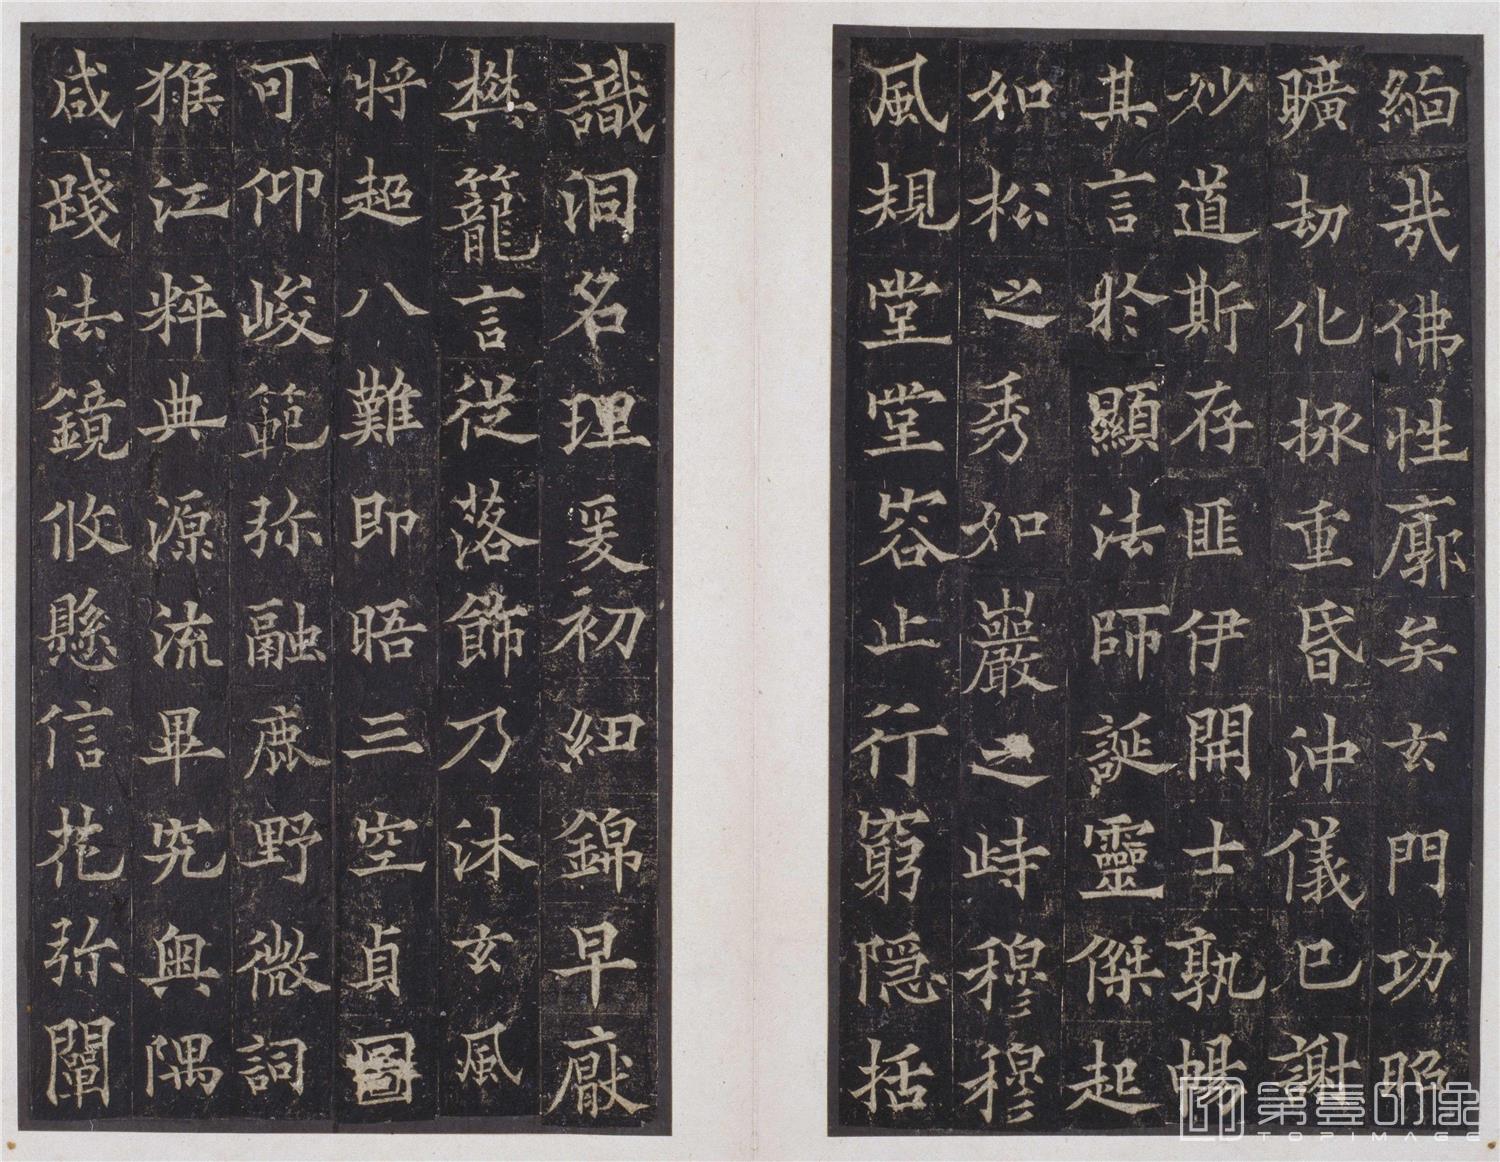 緬哉佛性廓矣玄門功昭
曠劫化拯重昏沖儀已謝
妙道斯存匪伊開士孰暢
其言於顯法師誕靈傑起
如松之秀如巖之峙穆穆
風規堂堂容止行窮隱括
識洞名理爰初細錦早厭
樊籠言從落飾乃沐玄風
將超八難即晤三空貞圖
可仰峻範弥融鹿野微詞
猴江粹典源流畢究奥隅
咸踐法鏡攸懸信花弥闡
第壹印像
TOPIMAGE